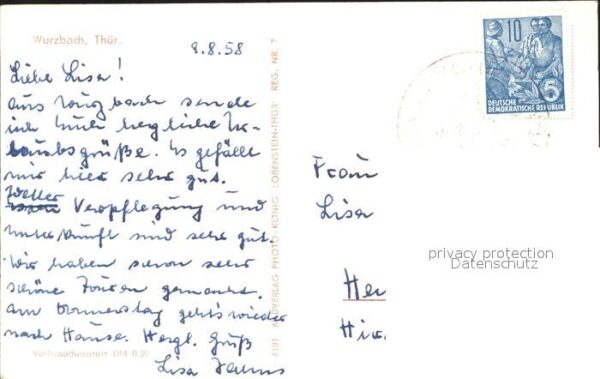 Wurzbach, Thür.
8.8.58
Liebe Lisa!
aus Wurzbach sende
ich Euch herzliche Ur-
laubsgrüße. Es gefällt
mir hier sehr gut.
Wetter
Verpflegung und
Unterkunft sind sehr gut
Wir haben schon sehr
schöne Touren gemacht.
am Donnerstag geht's wieder
nach Hause. Herzl. Gruß
Lisa
Verbraucherpreis DM 0,20
4191 BILDVERLAG PHOTO-KÖNIG LOBENSTEIN-THÜR. REG. NR. 7
10
5
DEUTSCHE
DEMOKRATISCHE REPUBLIK
Frau
Lisa
privacy protection
Datenschutz